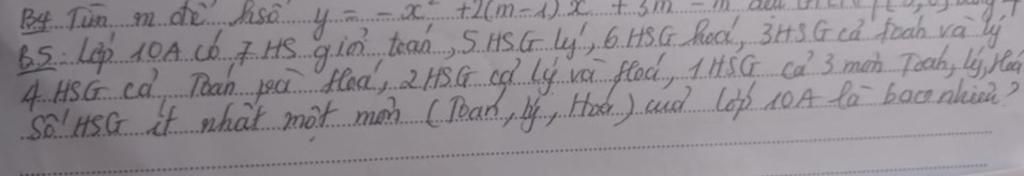 B4 Tìm m để hsố y = -x² + 2(m-1)x + 3m - m
B5: Lớp 10A có 7 HS giỏi toán, 5 HSG lý, 6 HSG hoá, 3HSG cả toán và lý
4 HSG cả Toán và Hoá, 2 HSG cả lý và Hoá, 1 HSG cả 3 môn Toán, Lý, Hoá
Số HSG ít nhất một môn (Toán, lý, Hoá) của lớp 10A là bao nhiêu?